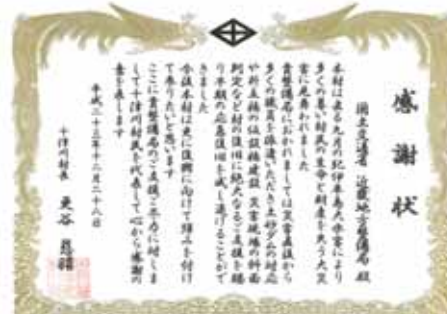 感謝状
国土交通省 近畿地方整備局 殿
本村は去る九月の紀伊半島大水害により
多くの尊い村民の生命と財産を失う大災
害に見舞われました
貴整備局におかれましては災害直後から
多くの職員を派遣いただき土砂ダムの対応
や折立橋の仮設橋建設 災害現場の斜面
判定など村の復旧に絶大なるご支援を賜
り早期の応急復旧を成し遂げることがで
きました
今後本村は更に復興に向けて踏み を付け
て参りたいと思います
ここに貴整備局のご支援ご尽力に対しま
して十津川村民を代表して心から感謝の
意を表します
平成二十三年十二月二十八日
十津川村長 更谷 慈禧